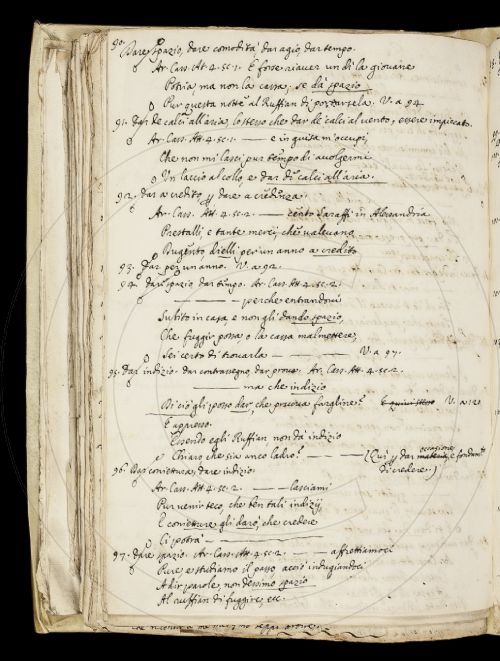 90. Dare spazio, dare comodità dar agio, dar tempo.
Ar. Cass. At. 4. sc. 1. E forse riaver un dì la giovane
Potria, ma non la cassa, se dà spazio
Pur questa notte al Ruffian di portarsela. V. a 94
91. Dar de calci all'aria, lo stesso che dar de calci al vento, essere impiccato.
Ar. Cass. At. 4. sc. 1. — e in guisa m'occupi,
Che non mi lasci pur tempo di avolgermi
Un laccio al collo, e dar di calci all'aria.
92. dar a credito, dare a credenza.
Ar. Cass. At. 4. sc. 2. — cento Saraffi in Alessandria
Prestalli e tante merci, che valevano
Dugento, dielli per un anno a credito
93. Dar per un anno. V. a 92.
94. dar spazio, dar tempo. Ar. Cass. At. 4. sc. 2.
— perche entrandovi
Subito in casa e non gli dando spazio,
Che fuggir possa o la cassa malmettere,
Sei certo di trovarla — V. a 97.
95. Dar indizio. dar contrassegno, dar prova. Ar. Cass. At. 4. sc. 2.
— ma che indizio
Di ciò gli posso dar che fargline? V. a 120
E appresso.
Essendo egli Ruffian, non dà indizio
Chiaro che sia anco ladro? — (Qui dar occasione e fondam.to
di credere.)
96. Dar coniettura, dare indizio.
Ar. Cass. At. 4. sc. 2. — lasciami
Pur venir teco, che ben tali indizij
E conietture gli darò, che credere
Ci potrà —
97. Dare spazio. Ar. Cass. At. 4. sc. 2. — affrettiamoci
Pure e studiamo il passo, acciò indugiandoci
A dir parole, non dessimo spazio
Al ruffian di fuggire, etc.